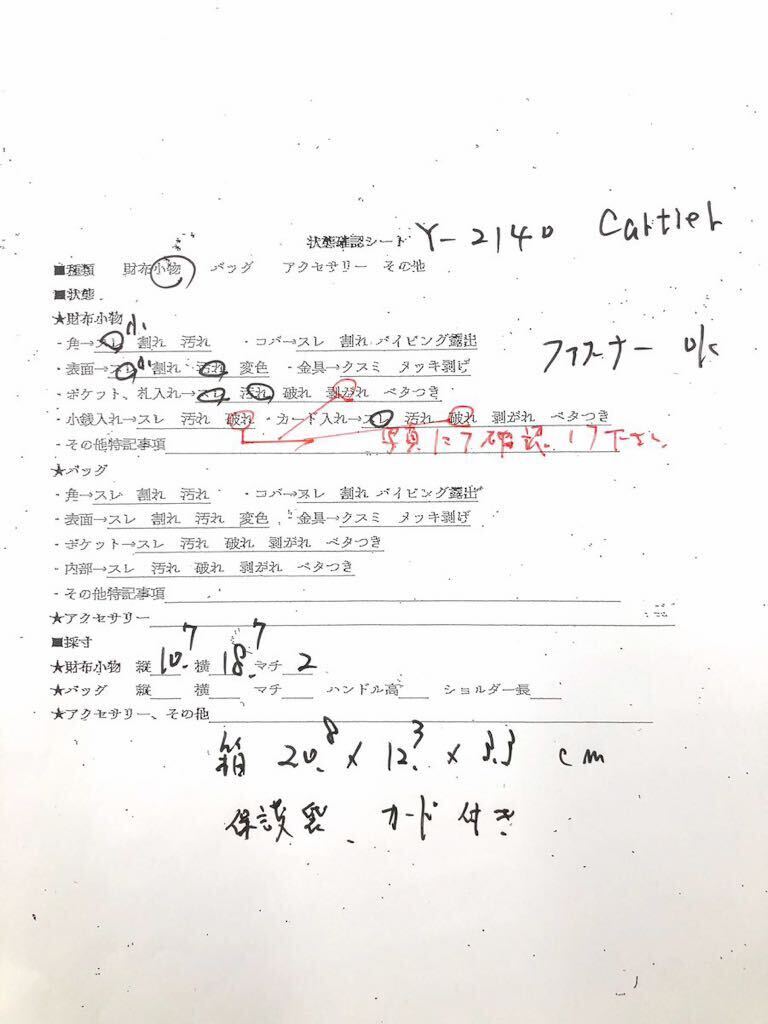 状態確認シート Y-2140 Cartier
■種類 財布小物 バッグ アクセサリー その他
■状態
★財布小物
・角→スレ 小 割れ 汚れ ・コバ→スレ 割れ パイピング露出
ファスナー ok
・表面→スレ 小 割れ 汚れ 変色 ・金具→クスミ メッキ剥げ
・ポケット、札入れ→スレ 汚れ 破れ 剥がれ ベタつき
・小銭入れ→スレ 汚れ 破れ ・カード入れ→スレ 汚れ 破れ 剥がれ ベタつき
・その他特記事項 写真にて確認して下さい
★バッグ
・角→スレ 割れ 汚れ ・コバ→スレ 割れ パイピング露出
・表面→スレ 割れ 汚れ 変色 ・金具→クスミ メッキ剥げ
・ポケット→スレ 汚れ 破れ 剥がれ ベタつき
・内部→スレ 汚れ 破れ 剥がれ ベタつき
・その他特記事項
★アクセサリー
■採寸
★財布小物 縦 10.7 横 18.7 マチ 2
★バッグ 縦 横 マチ ハンドル高 ショルダー長
★アクセサリー、その他
箱 20.8 × 12.3 × 3.3 cm
保護袋、カード付き